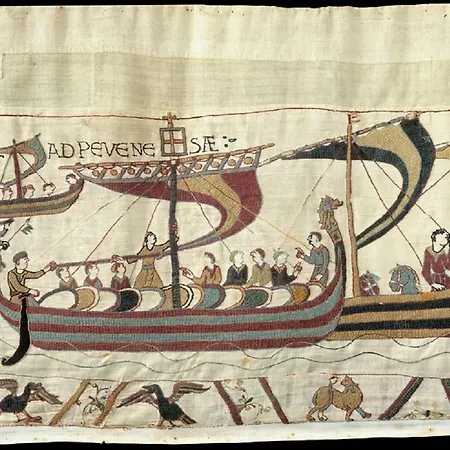 AD PEVENE SÆ :·